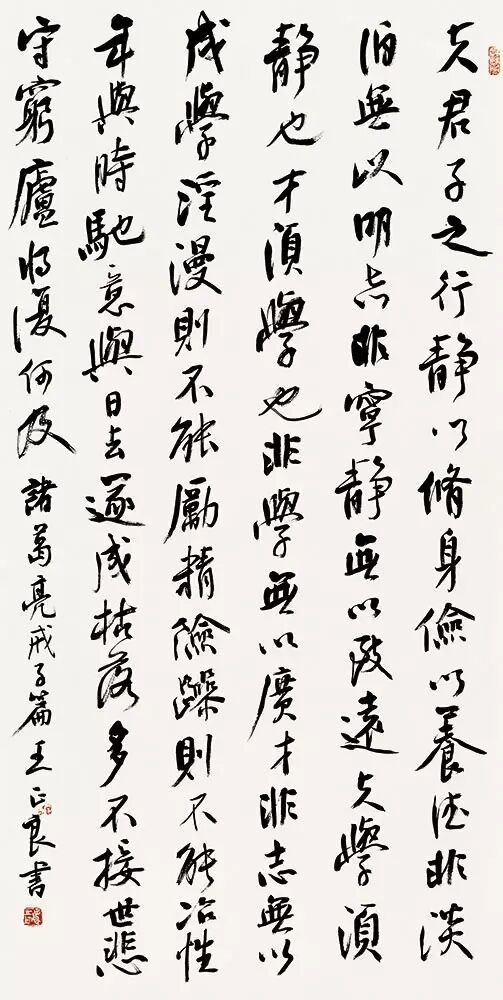 夫君子之行静以脩身儉以養德非淡
泊無以明志非寧静無以致遠夫學須
静也才須學也非學無以廣才非志無以
成學淫漫則不能勵精險躁則不能冶性
年與時馳意與日去遂成枯落多不接世悲
守窮廬将復何及諸葛亮戒子篇王正良書